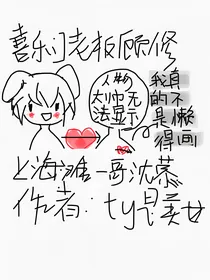 喜乐门老板顾修
人物
太帅无
法显示
我真
的不
是懒
得画
上海滩一哥沈慕
作者:ty是美女